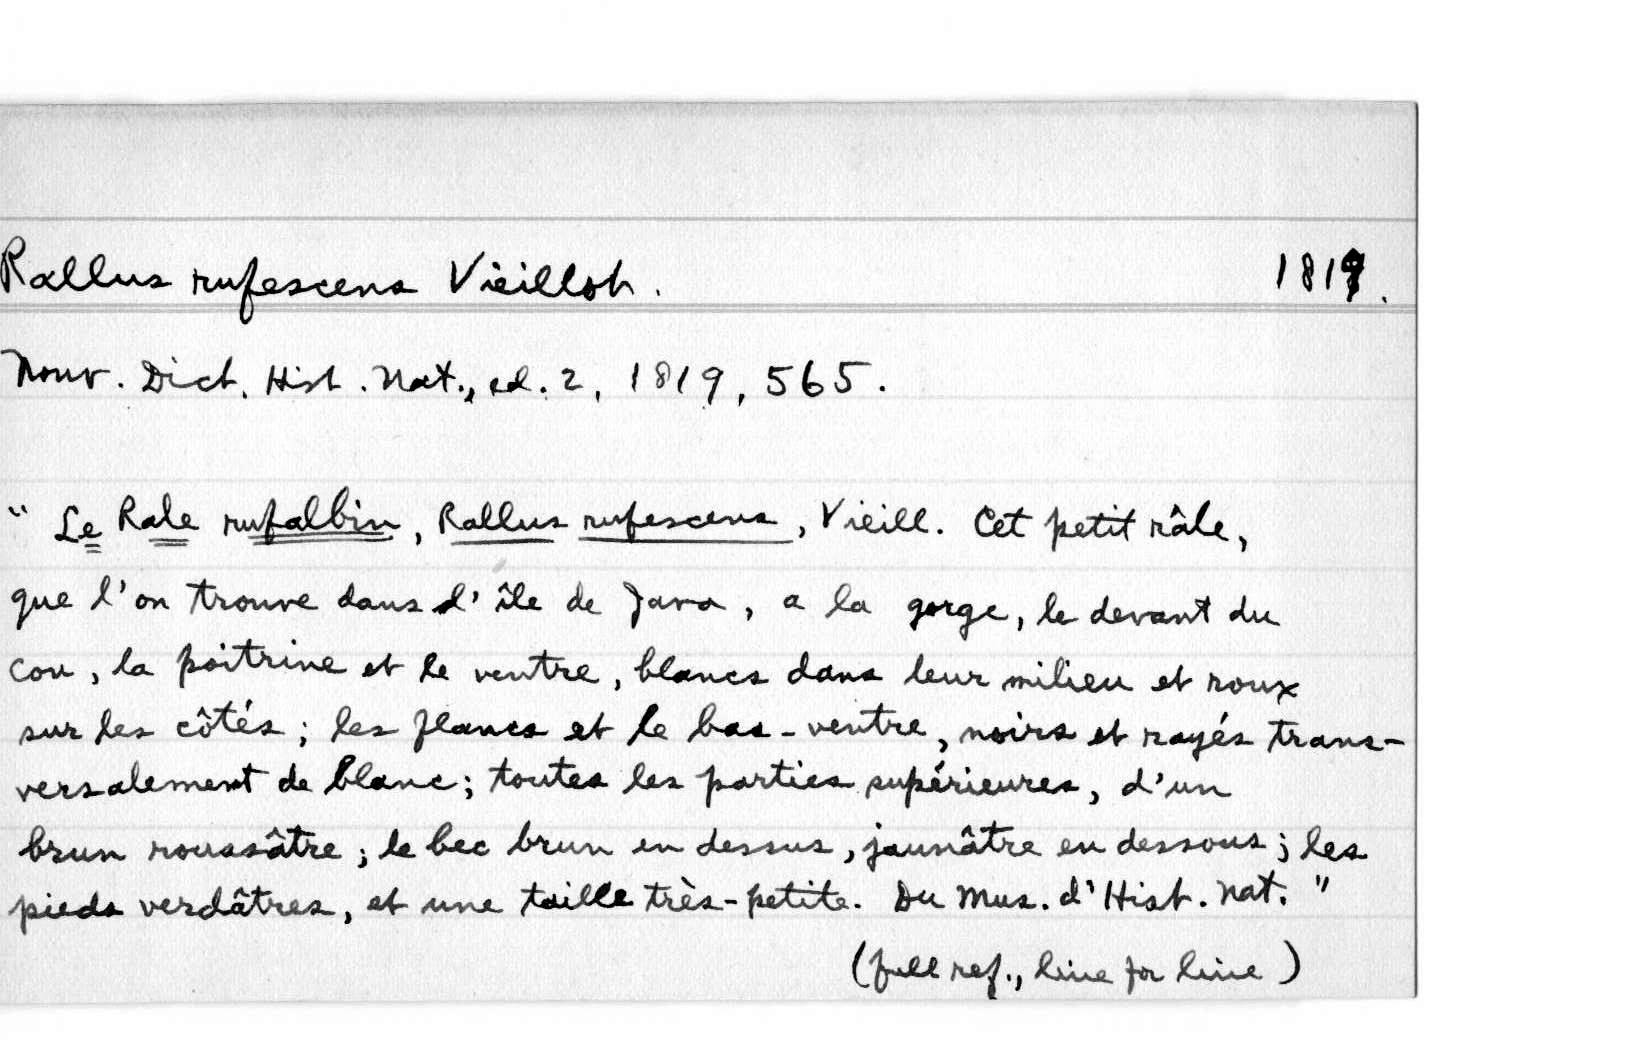 Rallus rufescens Vieillot. 1819.
Nouv. Dict. Hist. Nat., ed. 2, 1819, 565.
" Le Rale rufalbin, Rallus rufescens, Vieill. Cet petit râle,
que l'on trouve dans l'île de Java, a la gorge, le devant du
cou, la poitrine et le ventre, blancs dans leur milieu et roux
sur les côtés; les flancs et le bas-ventre, noirs et rayés trans-
versalement de blanc; toutes les parties supérieures, d'un
brun roussâtre; le bec brun en dessus, jaunâtre en dessous; les
pieds verdâtres, et une taille très-petite. Du Mus. d'Hist. Nat."
(full ref., line for line)